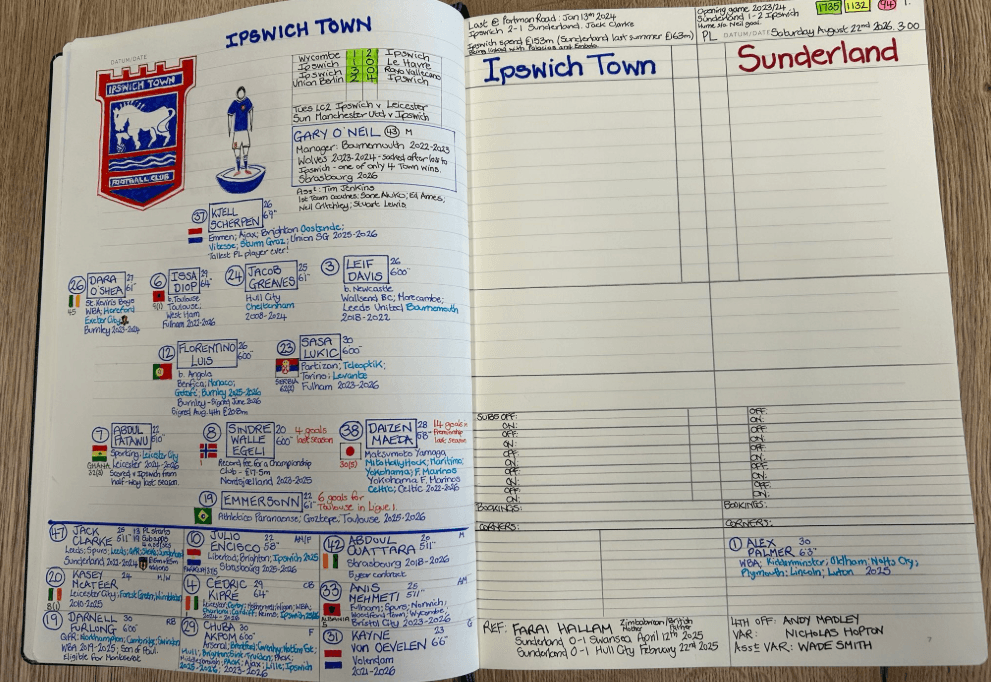 IPSWICH TOWN
DATUM/DATE
IPSWICH TOWN
FOOTBALL CLUB
Wycombe 1 2 Ipswich
Ipswich Le Havre
Ipswich Rayo Vallecano
Union Berlin Ipswich
Tues LC2 Ipswich v Leicester
Sun Manchester Utd v Ipswich
GARY O'NEIL 43 M
Manager: Bournemouth 2022-2023
Wolves 2023-2024 - sacked after loss to
Ipswich - one of only 4 Town wins.
Strasbourg 2026
Asst: Tim Jenkins
1st Team coaches: Sone Aluko; Ed Ames;
Neil Critchley; Stuart Lewis
37 KJELL SCHERPEN 26 6'9"
Emmen; Ajax; Brighton Oostende;
Vitesse; Sturm Graz; Union SG 2025-2026
Tallest PL player ever!
26 DARA O'SHEA 27 6'1"
45
St. Kevin's Boys
WBA; Hereford
Exeter City
Burnley 2023-2024
6 ISSA DIOP 29 6'4"
b. Toulouse
Toulouse;
West Ham
Fulham 2022-2026
24 JACOB GREAVES 25 6'1"
Hull City
Cheltenham
2008-2024
3 LEIF DAVIS 26 6'00"
b. Newcastle
Wallsend BC; Morecambe;
Leeds United Bournemouth
2018-2022
12 FLORENTINO LUIS 26 6'00"
b. Angola
Benfica; Monaco;
Getafe; Burnley 2025-2026
Burnley - Signed June 2026
Signed Aug. 4th £20.8m
23 SASA LUKIC 30 6'00"
SERBIA
Partizan; Teleoptik;
Torino; Levante
Fulham 2023-2026
7 ABDUL FATAWU 22 5'10"
GHANA
Sporting; Leicester City
Leicester 2024-2026
Scored v Ipswich from
half-way last season.
8 SINDRE WALLE EGELI 20 6'00"
4 goals last season
1
Record fee for a Championship
Club - £17.5m
Nordsjælland 2023-2025
38 DAIZEN MAEDA 28 5'8"
14 goals in Premiership last season
Matsumoto Yamaga;
Mito HollyHock; Maritimo;
Yokohama F. Marinos
Yokohama F. Marinos
Celtic; Celtic 2022-2026
19 EMMERSONN 22 6'1"
6 goals for Toulouse in Ligue 1.
Athletico Paranaense; Goztepe; Toulouse 2025-2026
47 JACK CLARKE 25 5'11"
Sunderland 2022-2024
10 JULIO ENCISO 22 5'8" AM/F
Libertad; Brighton; Ipswich 2025
Strasbourg 2025-2026
42 ABDOUL OUATTARA 20 5'11" M
Strasbourg 2018-2026
5 year contract
20 KASEY McATEER 24 M/W
Leicester City; Forest Green; Wimbledon
2010-2025
4 CEDRIC KIPRE 29 6'4" CB
33 ANIS MEHMETI 25 5'11" AM
Fulham; Spurs; Norwich;
Woodford Town; Wycombe;
Bristol City 2023-2026
19 DARNELL FURLONG 30 6'00" RB
QPR; Northampton; Cambridge; Swindon
WBA 2019-2025; Son of Paul.
Eligible for Montserrat
29 CHUBA AKPOM 30 6'00" F
31 KAYNE VAN OEVELEN 23 6'6" G
Volendam
2021-2026
Last @ Portman Road: Jan 13th 2024
Ipswich 2-1 Sunderland. Jack Clarke
Ipswich spend £153m (Sunderland last summer £163m)
Being linked with Palacios and Embolo
Opening game 2023/24
Sunderland 1-2 Ipswich
Hume s/o Neil goal.
1735 1132 94 1.
PL DATUM/DATE Saturday August 22nd 2026. 3:00
Ipswich Town Sunderland
SUBS OFF: OFF:
ON: ON:
OFF: OFF:
ON: ON:
OFF: OFF:
ON: ON:
OFF: OFF:
ON: ON:
OFF: OFF:
ON: ON:
BOOKINGS: BOOKINGS:
CORNERS: CORNERS:
1 ALEX PALMER 30 6'3"
WBA; Kidderminster; Oldham; Notts Cty;
Plymouth; Lincoln; Luton 2025
REF: FARAI HALLAM Zimbabwean/British
Father Mother
Sunderland 0-1 Swansea April 12th 2025
Sunderland 0-1 Hull City February 22nd 2025
4TH OFF: ANDY MADLEY
VAR: NICHOLAS HOPTON
Asst VAR: WADE SMITH